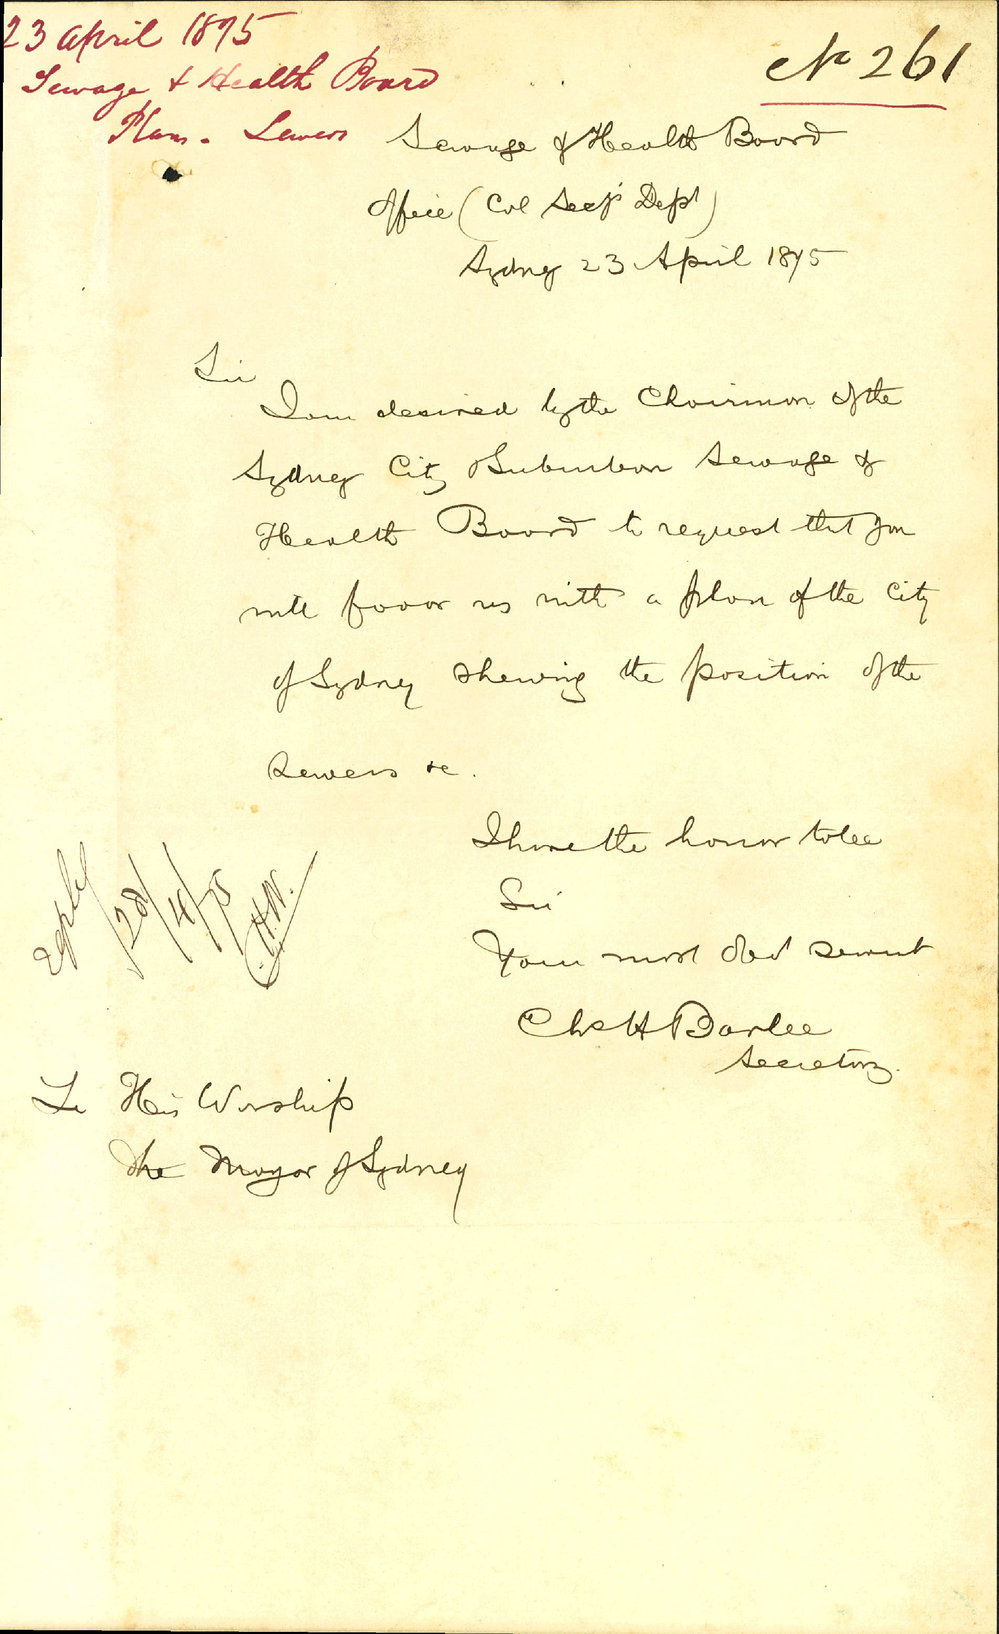 23 April 1875
Sewage & Health Board
Plans - Sewers
No 261
Sewage & Health Board
Office (Col Secy's Dept)
Sydney 23 April 1875
Sir
I am desired by the Chairman of the
Sydney City & Suburban Sewage &
Health Board to request that you
will favor us with a plan of the City
of Sydney shewing the position of the
Sewers &c.
I have the honor to be
Sir
Your most obed servant
Chs H Barlee
Secretary.
reply
/28/4/75
C.H.W.
To His Worship
The Mayor of Sydney